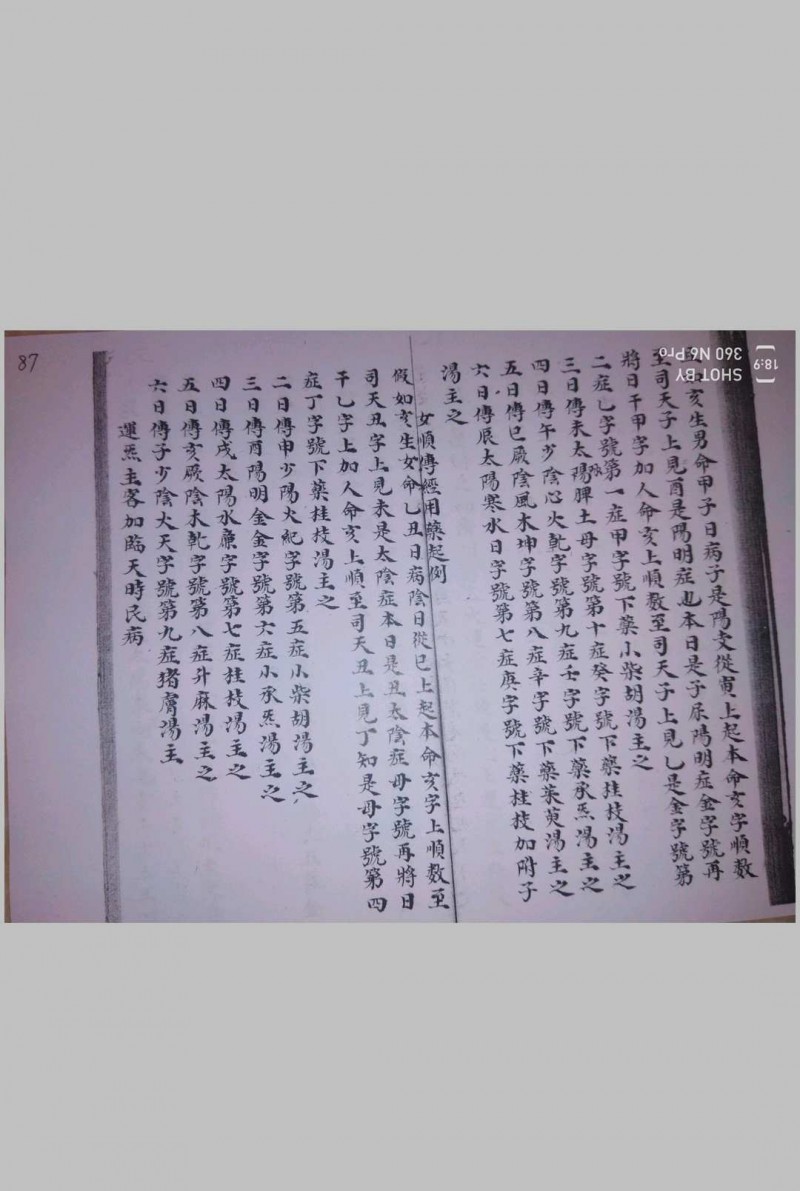 亥生男命甲子日病子是陽支從寅上起本命亥字順數
至司天子上見酉是陽明症也本日是子屎陽明症金字號再
將日干甲字加人命亥上順數至司天子上見乚是金字號第
二症乚字號第一症甲字號下藥小柴胡湯主之
三日傳未太陽脾土母字號第十症癸字號下藥桂枝湯主之
四日傳午少陰心火乾字號第九症壬字號下藥承炁湯主之
五日傳巳厥陰風木坤字號第八症辛字號下藥茱萸湯主之
六日傳辰太陽寒水日字號第七症庚字號下藥桂枝加附子
湯主之
女順傳經用藥起例
假如亥生女命乚丑日病陰日從巳上起本命亥字上順數至
司天丑字上見未是太陰症本日是丑太陰症母字號再將日
干乚字上加人命亥上順至司天丑上見丁知是母字號第四
症丁字號下藥桂枝湯主之
二日傳申少陽火紀字號第五症小柴胡湯主之
三日傳酉陽明金金字號第六症小承炁湯主之
四日傳戌太陽水廉字號第七症桂枝湯主之
五日傳亥厥陰木乾字號第八症升麻湯主之
六日傳子少陰火天字號第九症猪膚湯主
運炁主客加臨天時民病
87
SHOT BY
360 N6 Pro
18:9